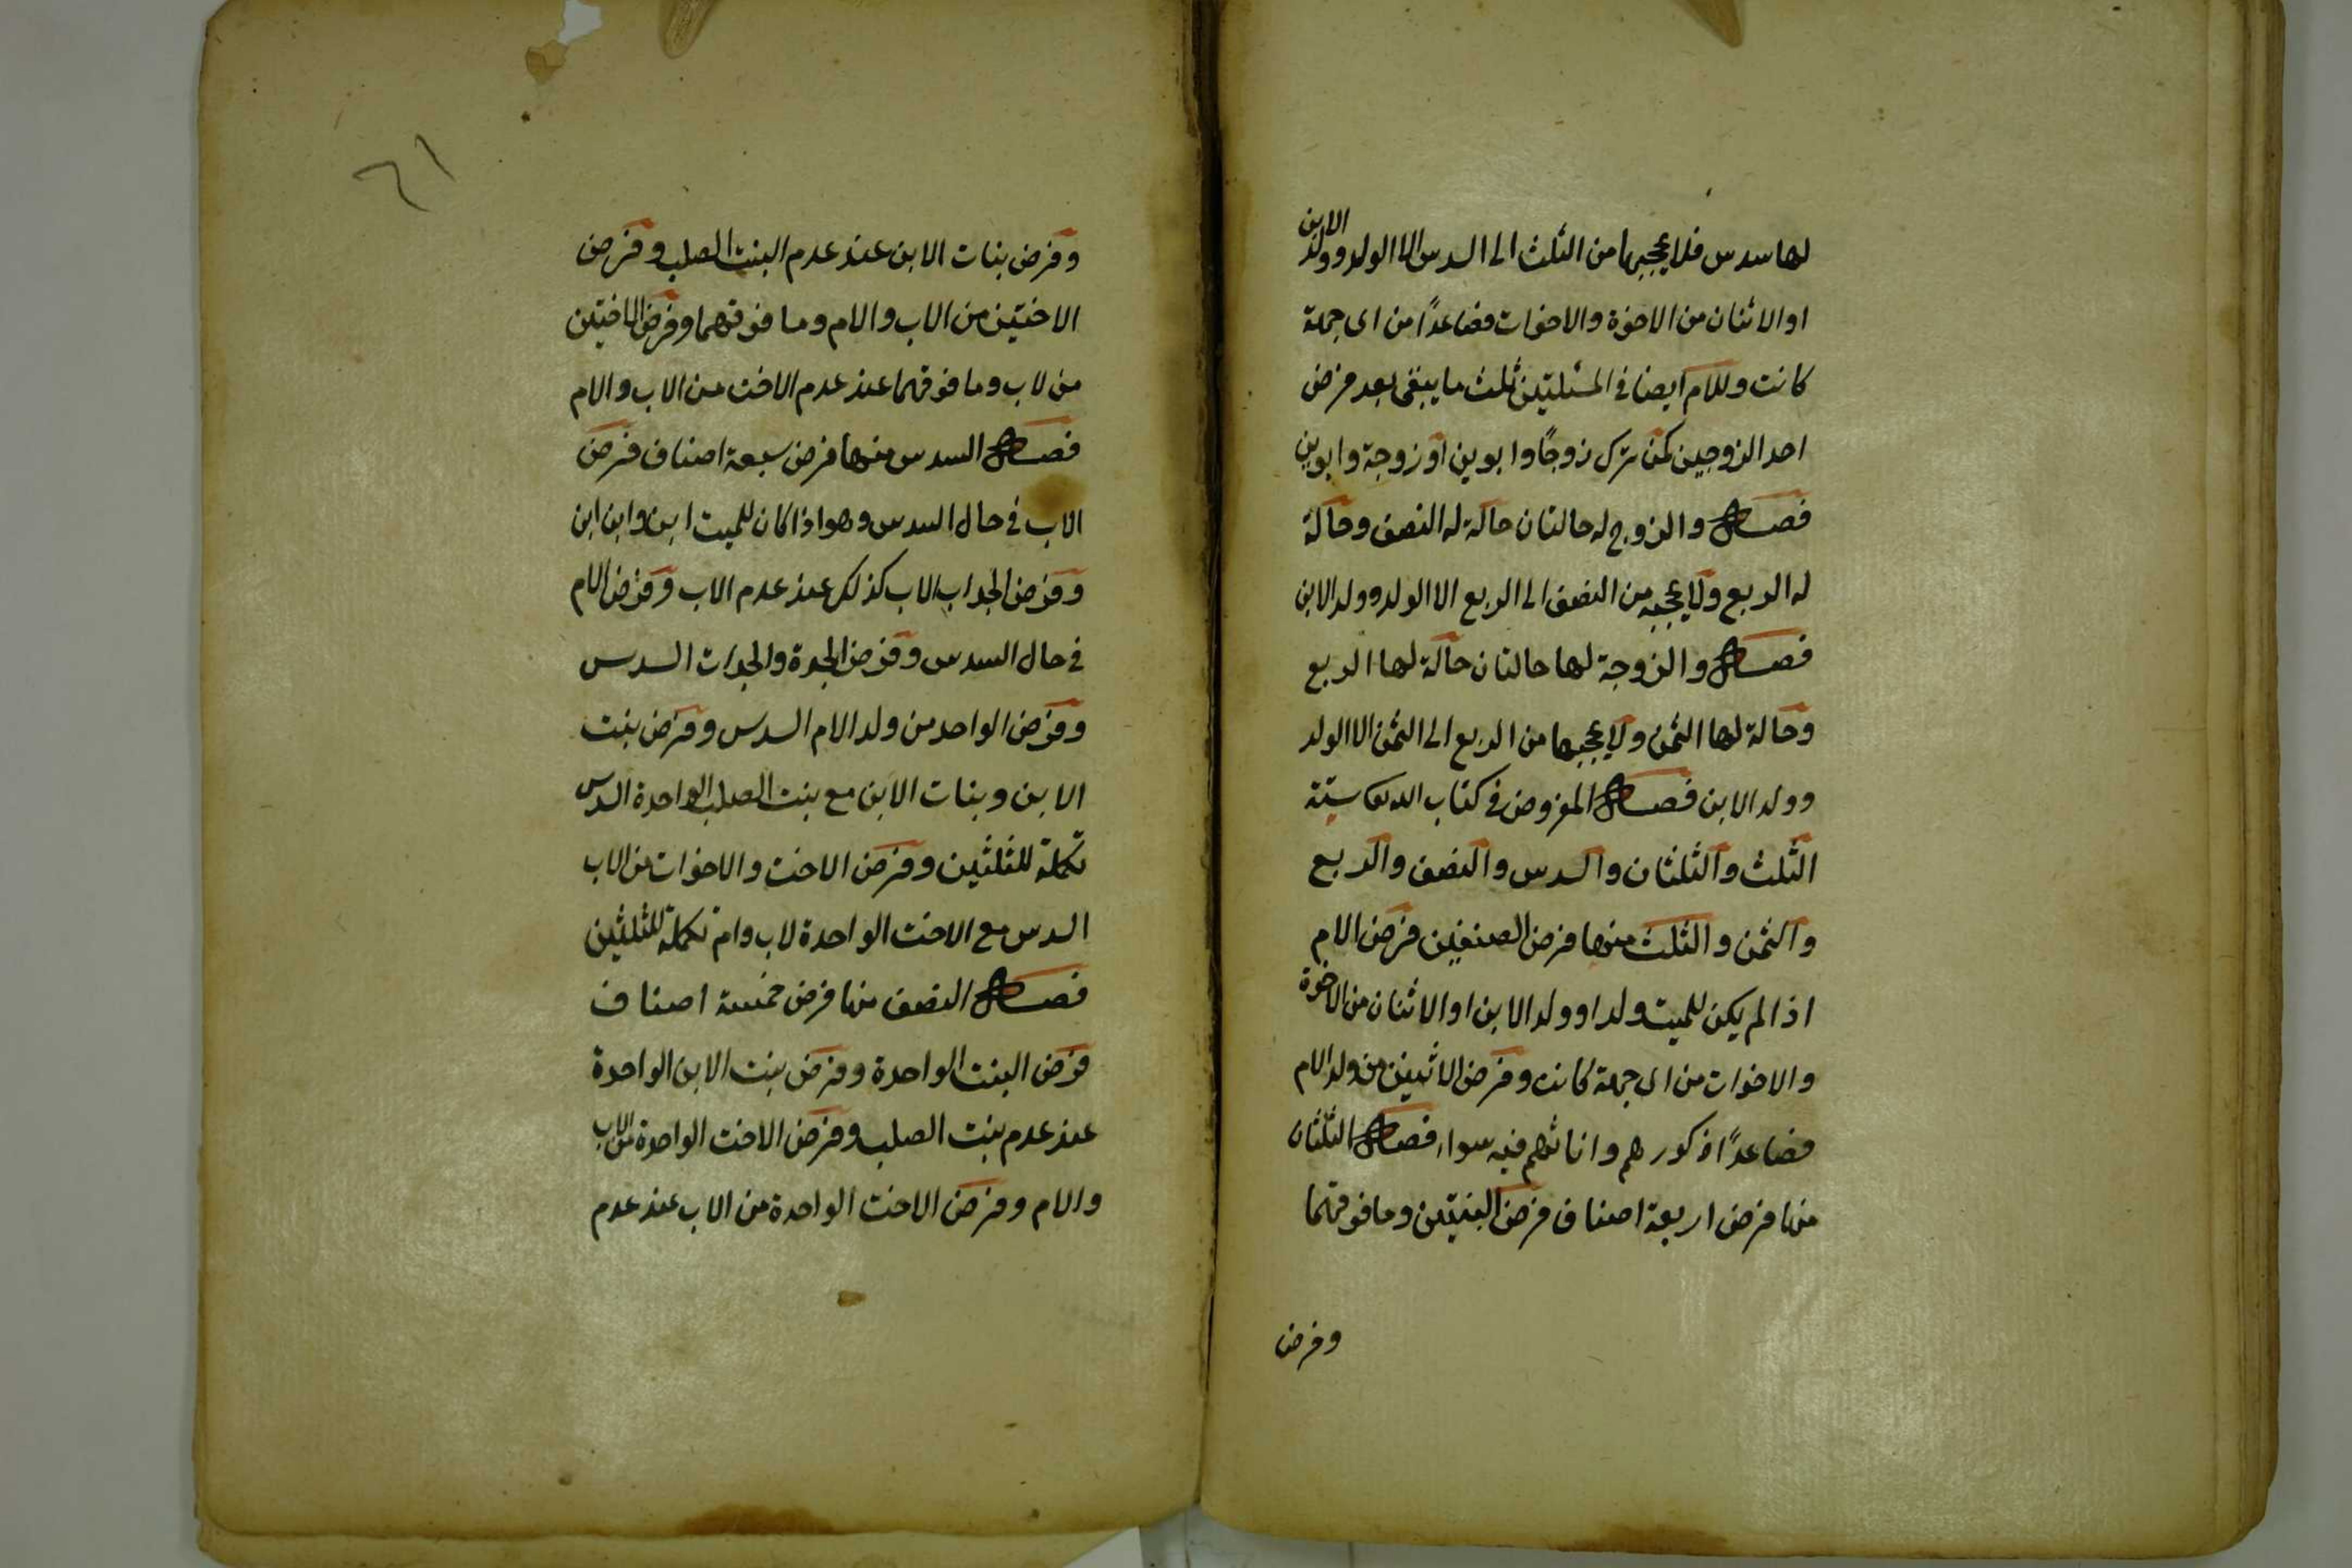 لها سدس فلا يحجبها من الثلث الى السدس الا الولد وولد الابن
او الاثنان من الاخوة والاخوات فصاعدًا من اى جهة
كانت وللام ايضا فى المسئلتين ثلث ما يبقى بعد فرض
احد الزوجين كمن ترك زوجًا وابوين او زوجة وابوين
فصل والزوج له حالتان حالة له النصف وحالة
له الربع ولا يحجبه من النصف الى الربع الا الولد وولد الابن
فصل والزوجة لها حالتان حالة لها الربع
وحالة لها الثمن ولا يحجبها من الربع الى الثمن الا الولد
وولد الابن فصل المفروض فى كتاب الله تعا ستة
الثلث والثلثان والسدس والنصف والربع
والثمن والثلث منها فرض الصنفين فرض الام
اذا لم يكن للميت ولد او ولد الابن او الاثنان من الاخوة
والاخوات من اى جهة كانت وفرض الاثنين من ولد الام
فصاعدًا ذكورهم واناثهم فيه سواء فصل الثلثان
منها فرض اربعة اصناف فرض البنتين وما فوقهما
وفرض
٦١
وفرض بنات الابن عند عدم البنت الصلب وفرض
الاختين من الاب والام وما فوقهما وفرض الاختين
من لاب وما فوقهما عند عدم الاخت من الاب والام
فصل السدس منها فرض سبعة اصناف فرض
الاب فى حال السدس وهو اذا كان للميت ابن وابن ابن
وفرض الجد اب الاب كذلك عند عدم الاب وفرض الام
فى حال السدس وفرض الجدة والجدات السدس
وفرض الواحد من ولد الام السدس وفرض بنت
الابن وبنات الابن مع بنت الصلب الواحدة السدس
تكملة للثلثين وفرض الاخت والاخوات من الاب
السدس مع الاخت الواحدة لاب وام تكملة للثلثين
فصل النصف منها فرض خمسة اصناف
فرض البنت الواحدة وفرض بنت الابن الواحدة
عند عدم بنت الصلب وفرض الاخت الواحدة من الاب
والام وفرض الاخت الواحدة من الاب عند عدم